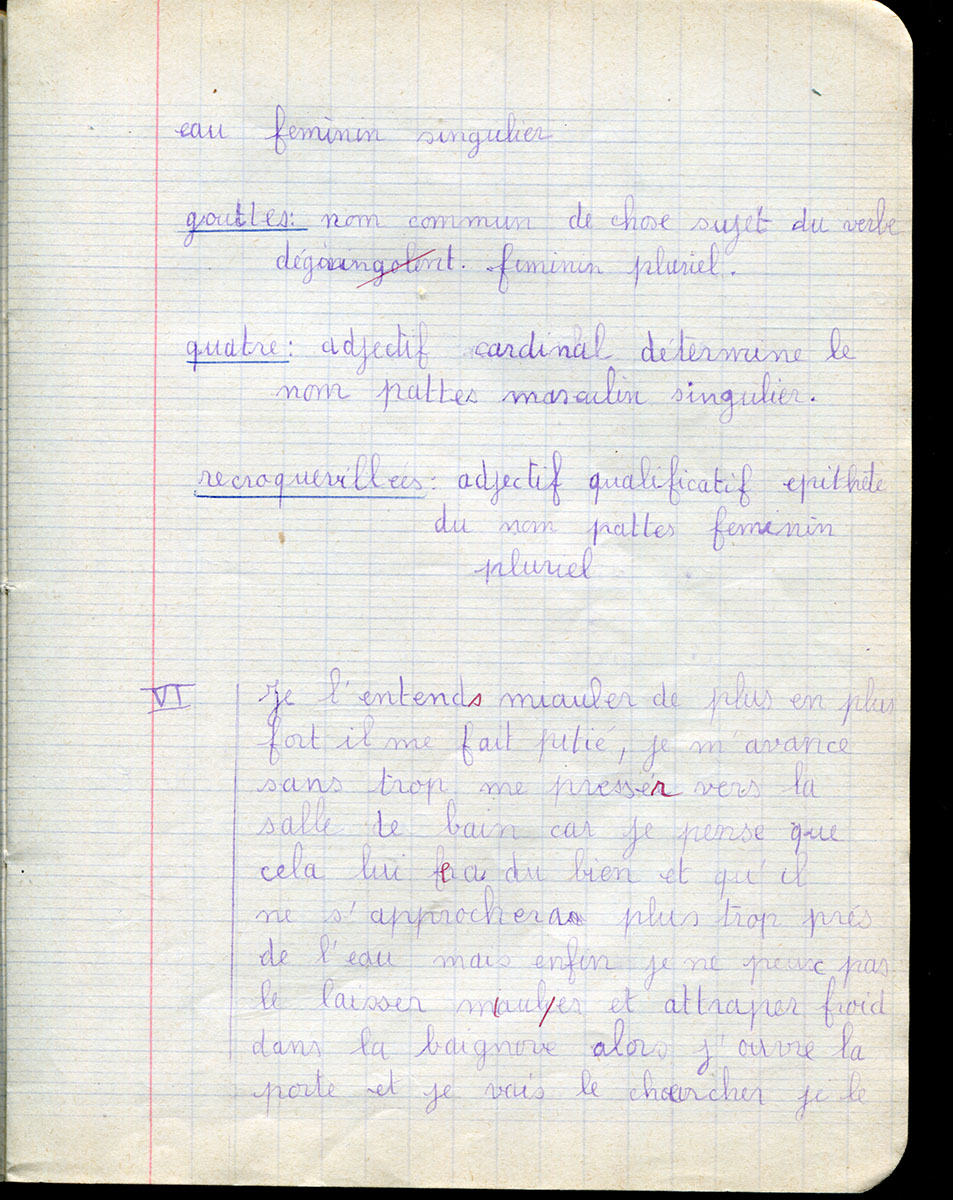 eau feminin singulier
gouttes: nom commun de chose sujet du verbe
dégoungolent. feminin pluriel.
quatre: adjectif cardinal détermine le
nom pattes masculin singulier.
recroquevillées: adjectif qualificatif epithète
du nom pattes feminin
pluriel
VI Je l'entends miauler de plus en plus
fort il me fait pitié, je m'avance
sans trop me presser vers la
salle de bain car je pense que
cela lui fera du bien et qu'il
ne s'approchera plus trop près
de l'eau mais enfin je ne peux pas
le laisser miauler et attraper froid
dans la baignore alors j'ouvre la
porte et je vais le chercher je le